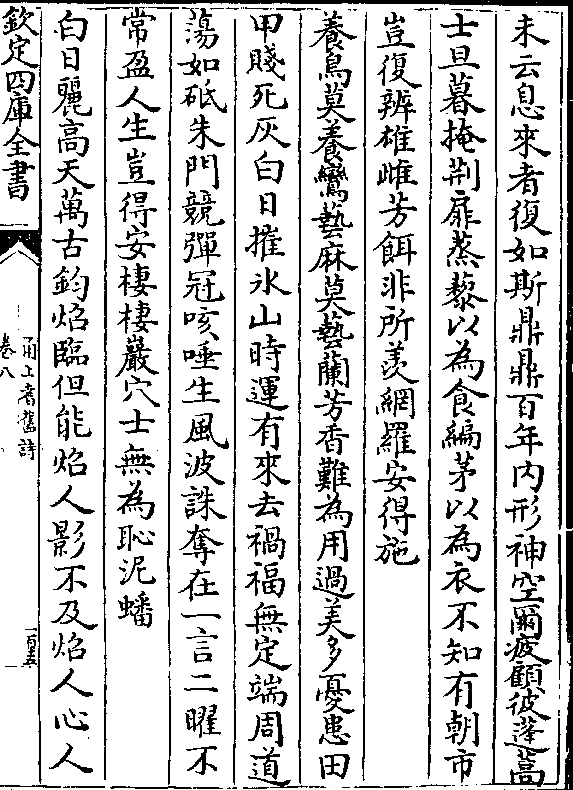 未云息來者復如斯鼎鼎百年内形神空爾疲顧彼蓬蒿
士旦暮掩荆扉蒸藜以為食編茅以為衣不知有朝市
豈復辨雄雌芳餌非所羡網羅安得施
養鳥莫養鸞藝麻莫藝蘭芳香難為用過美多憂患田
甲賤死灰白日摧氷山時運有來去禍福無定端周道
蕩如砥朱門競彈冠咳唾生風波誅奪在一言二曜不
常盈人生豈得安棲棲巖穴士無為恥泥蟠
白日麗高天萬古鈞焰臨但能焰人影不及焰人心人
欽定四庫全書
甬上耆舊詩
卷八